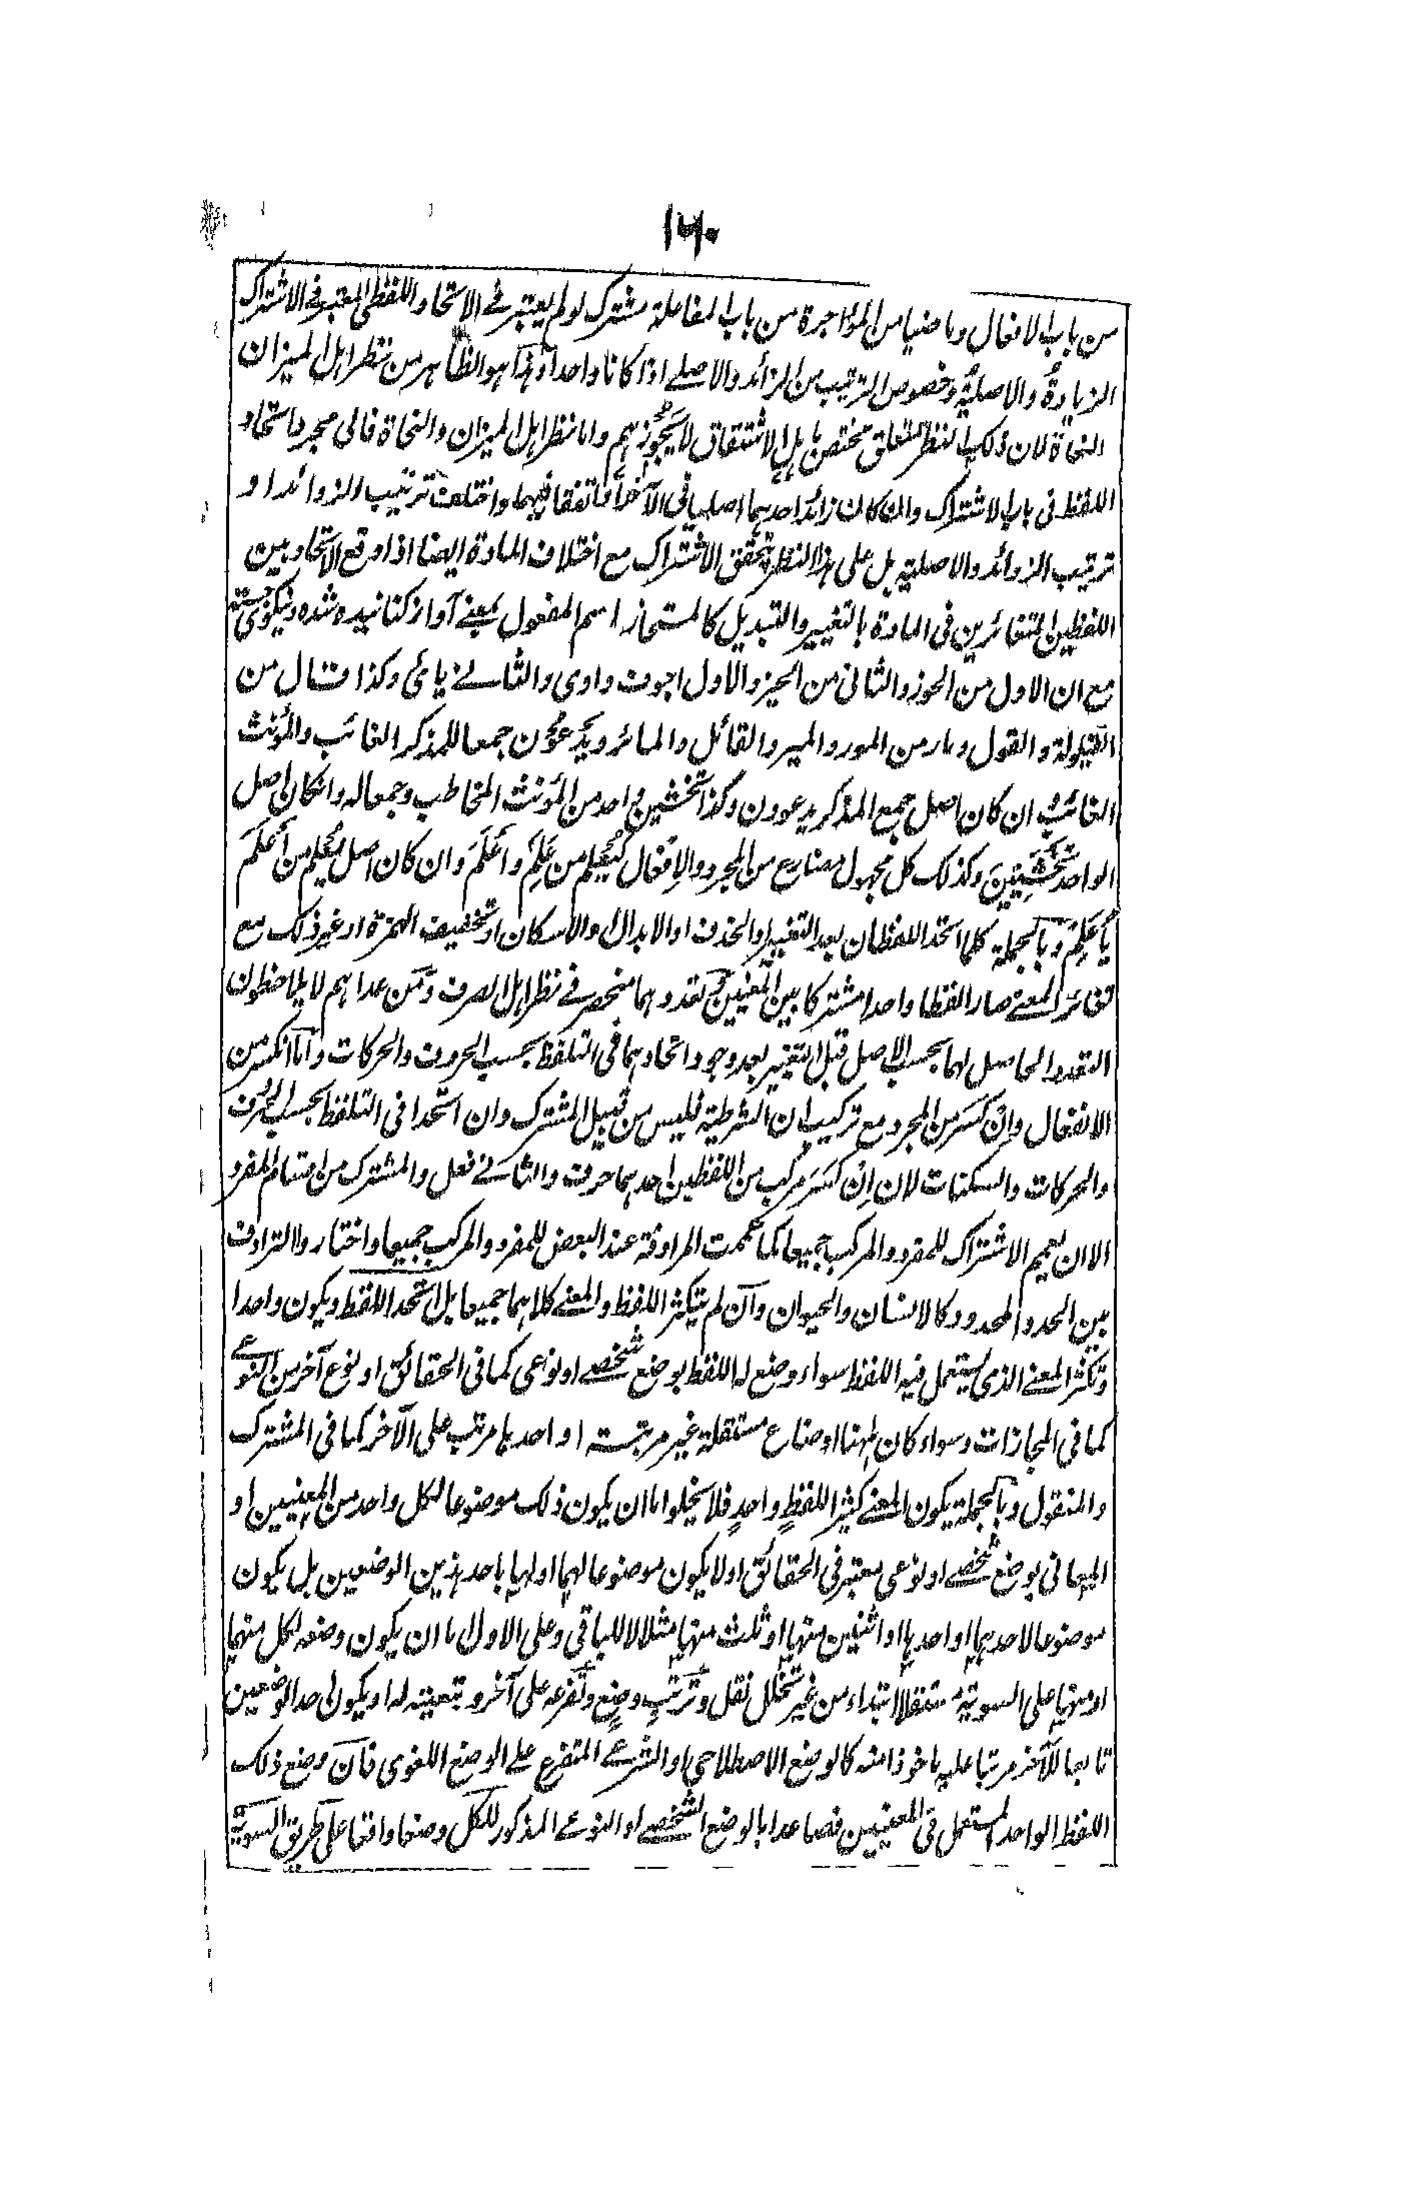 ١٦٠
من باب الافعال وماضيا من المؤاجرة من باب المفاعلة مشترك لو لم يعتبر في الاتحاد اللفظى المعتبر في الاشتراك
الزيادة والاصلية وخصوص الترتيب من الزائد والاصلے اذا كانا واحدا وهذا هو الظاهر من نظر اهل الميزان
النحاة لان ذلك النظر متعلق مختص باهل الاشتقاق لا يجوزهم واما نظر اهل الميزان والنحاة فالى مجرد اتحاد
اللفظ فى باب الاشتراك وان كان زائد احدهما اصليا فى الآخر او اتفقا فيهما واختلف ترتيب الزوائد او
ترتيب الزوائد والاصلية بل على هذا النظر يتحقق الاشتراك مع اختلاف المادة ايضا اذا وقع الاتحاد بين
اللفظين المتغائرين فى المادة بالتغيير والتبديل كالمستحاز اسم المفعول بمعنے آواز كنانيده شده ونيكوئى
مع ان الاول من الحوز والثانى من الحيز والاول اجوف واوى والثانے يائى وكذا قال من
القيلولة والقول ومار من المور والمير والقائل والمائر ويدعون جمعا للمذكر الغائب والمؤنث
الغائب وان كان اصل جمع المذكر يدعوون وكذا تخشين واحد من المؤنث المخاطب وجمعا له وانكان اصل
الواحد تخشيين وكذلك كل مجهول مضارع من المجرد والافعال كيعلم من علم واعلم وان كان اصل يعلم من أعلم
يأعلم وبالجملة كلما اتحد اللفظان بعد التغيير او الحذف او الابدال والاسكان او تخفيف الهمزة او غير ذلك مع
تغائر المعنے صار لفظا واحدا مشتركا بين المعنيين وتعددهما منحصر فے نظر اهل الصرف ومن عداهم لا يلاحظون
التعدد الحاصل لهما بحسب الاصل قبل التغيير بعد وجود اتحادهما فى التلفظ بحسب الحروف والحركات واما انكسر من
الانفعال وان كسر من المجرد مع تركيب ان الشرطية فليس من قبيل المشترك وان اتحدا فى التلفظ بحسب الحروف
والحركات والسكنات لان ان كسر مركب من اللفظين احدهما حرف والثانے فعل والمشترك من اقسام المفرد
الا ان يعمم الاشتراك للمفرد والمركب جميعا كما عممت المرادفة عند البعض للمفرد والمركب جميعا واختاروا الترادف
بين الحد والمحدود كالانسان والحيوان وان لم يتكثر اللفظ والمعنے كلاهما جميعا بل اتحد اللفظ ويكون واحدا
وتكثر المعنے الذى يستعمل فيه اللفظ سواء وضع له اللفظ بوضع شخصے او نوعى كما فى الحقائق او نوع آخر من النوعے
كما فى المجازات وسواء كان لهنا اوضاع مستقلة غير مرتبة او احدها مرتب على الآخر كما فى المشترك
والمنقول وبالجملة يكون المعنے كثيرا للفظ واحد فلا يخلو اما ان يكون ذلك موضوعا لكل واحد من المعنيين او
المعانى بوضع شخصے او نوعى معتبر فى الحقائق او لا يكون موضوعا لهما او لها باحد هذين الوضعين بل يكون
موضوعا لاحدهما او احدها او اثنين منها او ثلث منها مثلا لا للباقى وعلى الاول اما ان يكون وضعه لكل منهما
او منها على السوية مستقلا ابتداء من غير تخلل نقل وترتب وضع وتفرعه على آخر وتبعيته له او يكون احد الوضعين
تابعا للآخر مرتبا عليه ماخوذا منه كالوضع الاصطلاحى او الشرعے المتفرع علے الوضع اللغوى فان وضع ذلك
اللفظ الواحد المستعمل فى المعنيين فصاعدا بالوضع الشخصے او النوعے المذكور للكل وضعا واقعا على طريق السوية